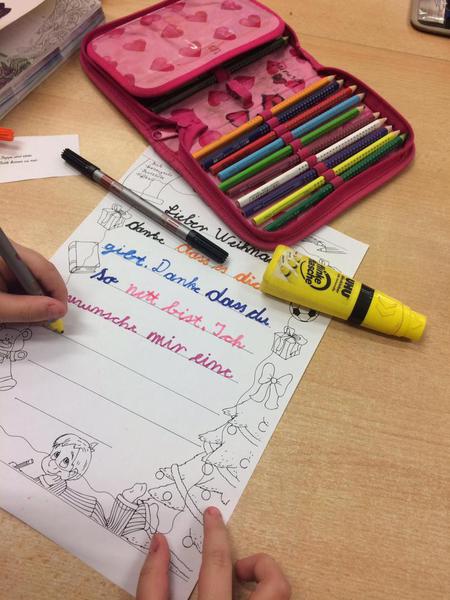 Lieber Weihna
danke dass es dic
gibt. Danke dass du
so nett bist. Ich
wünsche mir eine
UHU
flinke
flasche